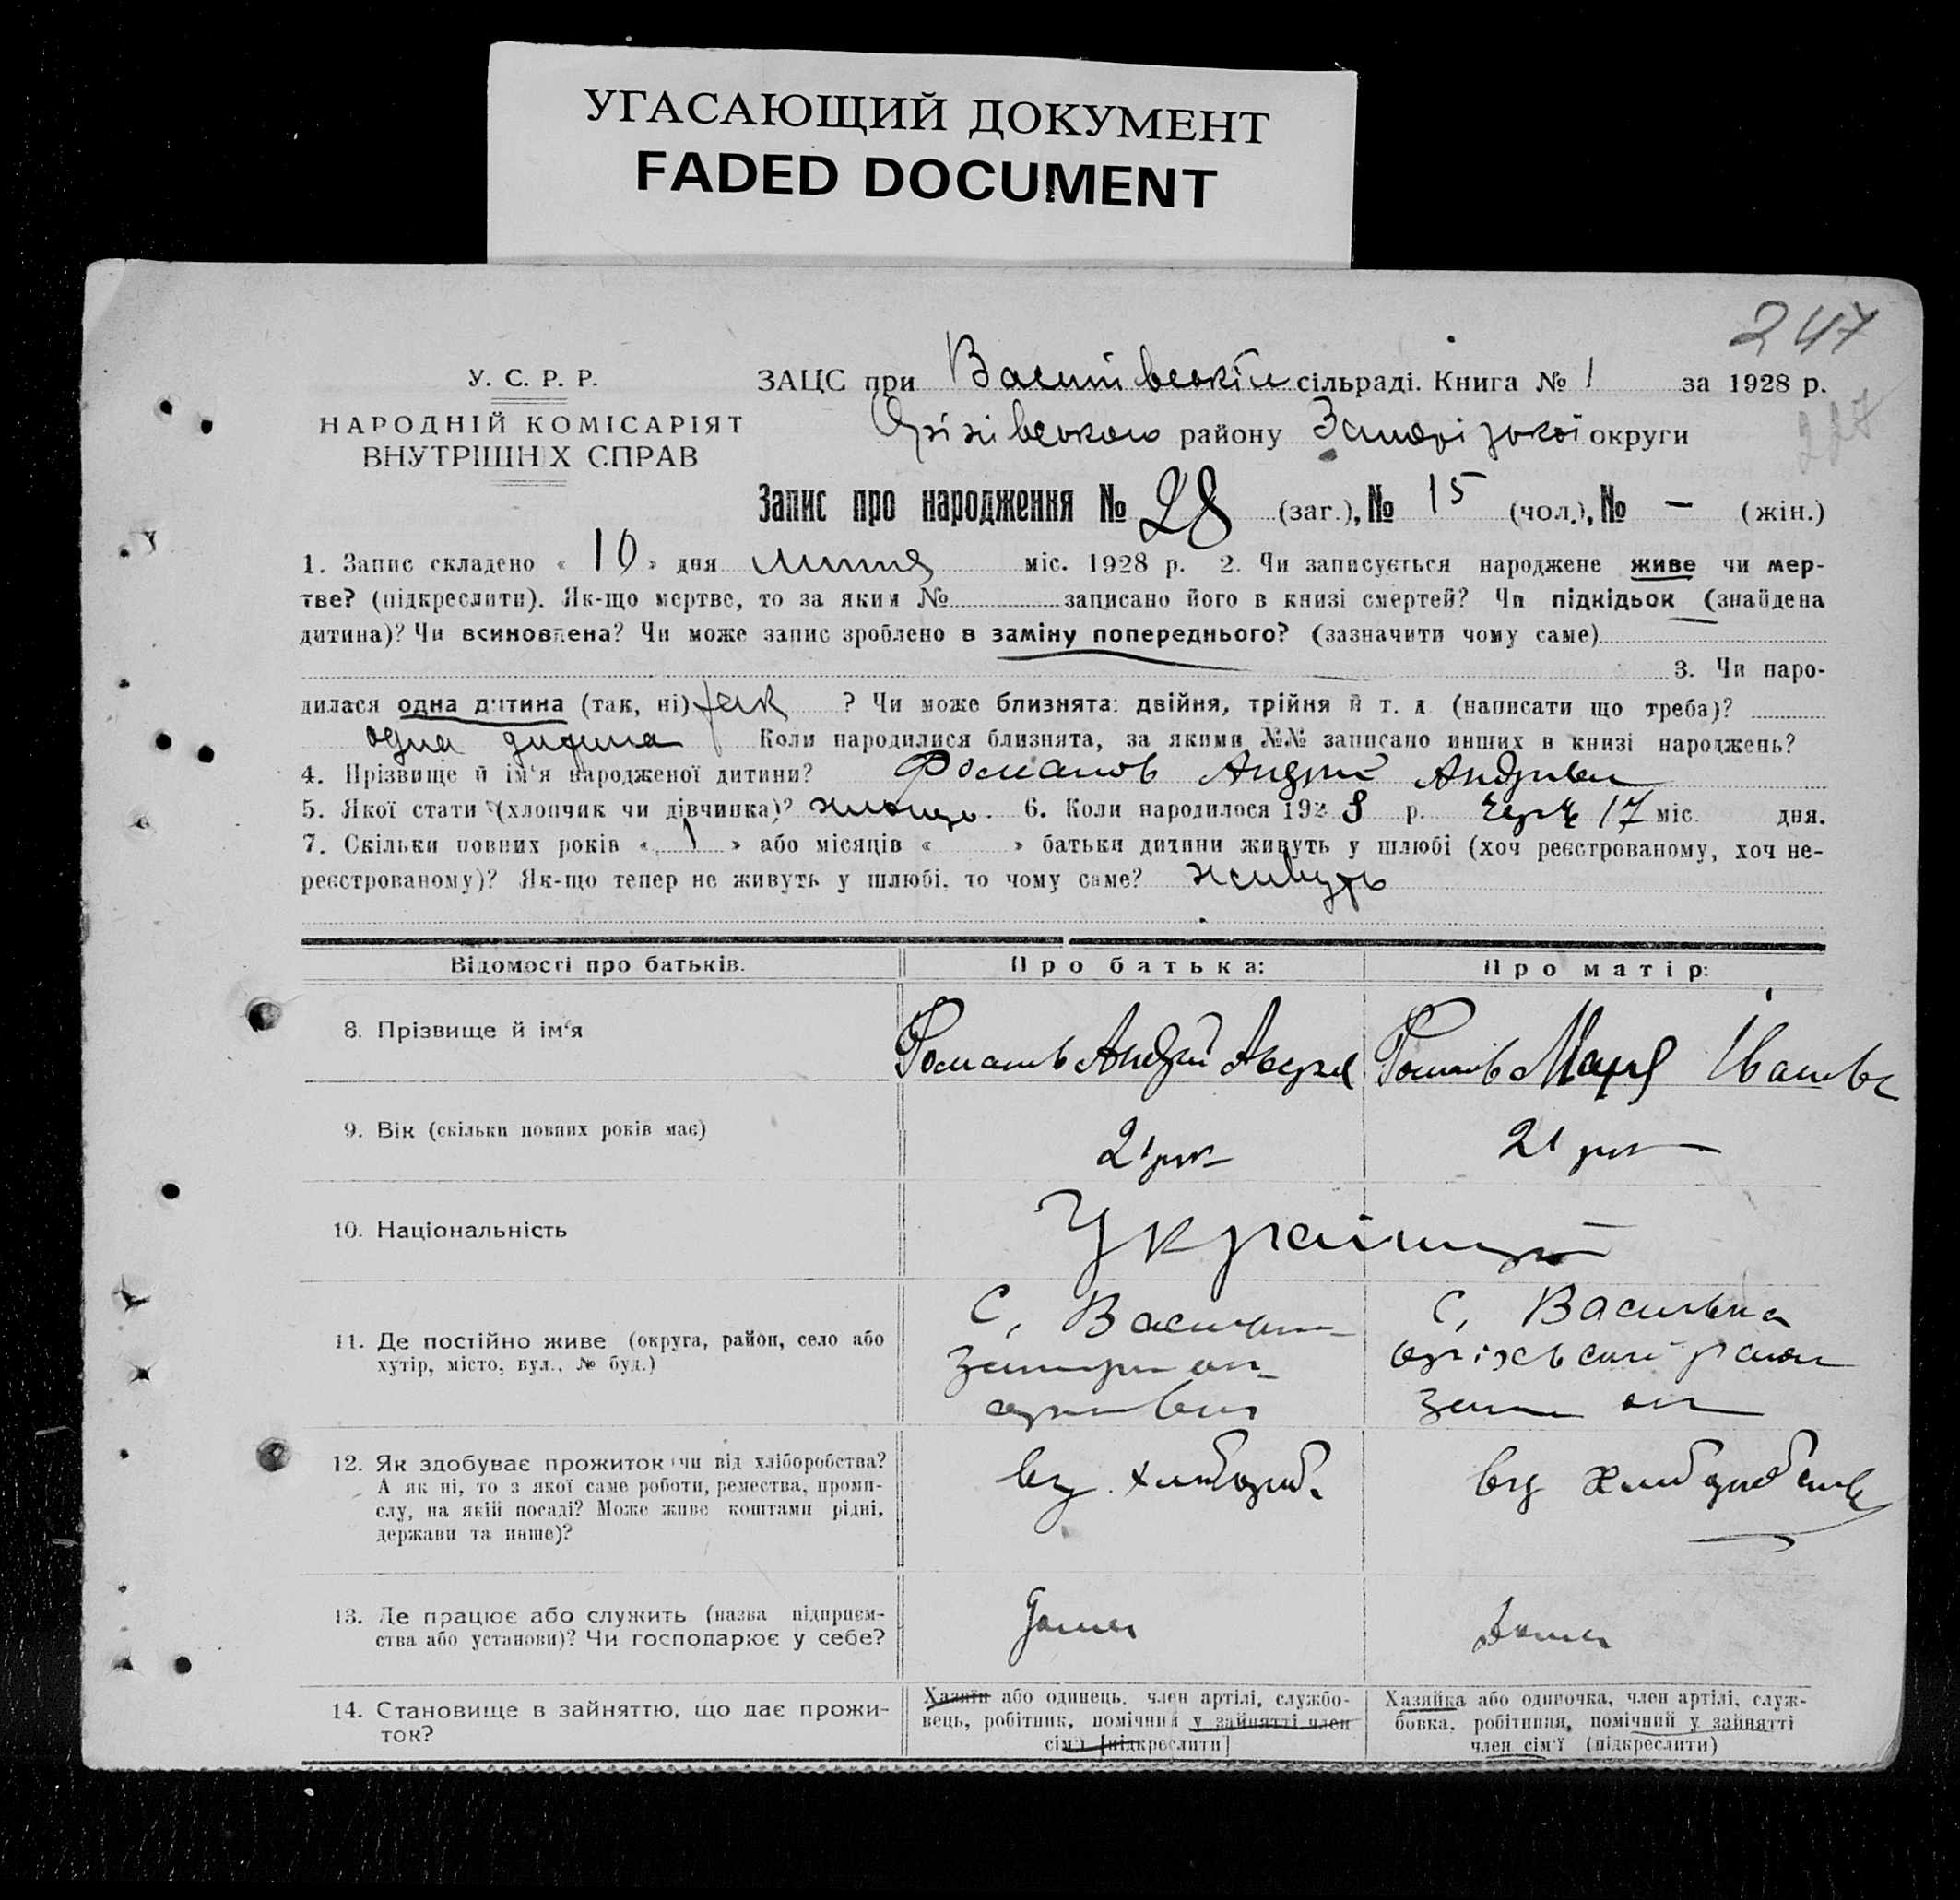 УГАСАЮЩИЙ ДОКУМЕНТ
FADED DOCUMENT
247
227
У. С. Р. Р.
НАРОДНІЙ КОМІСАРІЯТ
ВНУТРІШНІХ СПРАВ
ЗАЦС при сільраді. Книга № 1 за 1928 р.
району округи
Запис про народження № 28 (заг.), № 15 (чол.), № — (жін.)
1. Запис складено « 10 » дня липня міс. 1928 р. 2. Чи записується народжене живе чи мер-
тве? (підкреслити). Як-що мертве, то за яким № записано його в книзі смертей? Чи підкідьок (знайдена
дитина)? Чи всиновлена? Чи може запис зроблено в заміну попереднього? (зазначити чому саме)
3. Чи наро-
дилася одна дитина (так, ні) так ? Чи може близнята: двійня, трійня й т. д. (написати що треба)?
одна дитина Коли народилися близнята, за якими №№ записано инших в книзі народжень?
4. Прізвище й ім'я народженої дитини? Романов Андрій
5. Якої стати (хлопчик чи дівчинка)? 6. Коли народилося 1928 р. 17 міс. дня.
7. Скільки повних років « 1 » або місяців « » батьки дитини живуть у шлюбі (хоч реєстрованому, хоч не-
реєстрованому)? Як-що тепер не живуть у шлюбі, то чому саме? живуть
Відомості про батьків. Про батька: Про матір:
8. Прізвище й ім'я Романов Андрій
9. Вік (скільки повних років має) 21 21
10. Національність
11. Де постійно живе (округа, район, село або
хутір, місто, вул., № буд.)
С. С.
12. Як здобуває прожиток (чи від хліборобства?
А як ні, то з якої саме роботи, ремества, проми-
слу, на якій посаді? Може живе коштами рідні,
держави та инше)?
13. Де працює або служить (назва підприєм-
ства або установи)? Чи господарює у себе?
дома дома
14. Становище в зайняттю, що дає прожи-
ток?
Хазяїн або одинець, член артілі, службо-
вець, робітник, помічний у зайнятті член
сім'ї [підкреслити]
Хазяйка або одиночка, член артілі, служ-
бовка, робітниця, помічний у зайнятті
член сім'ї (підкреслити)